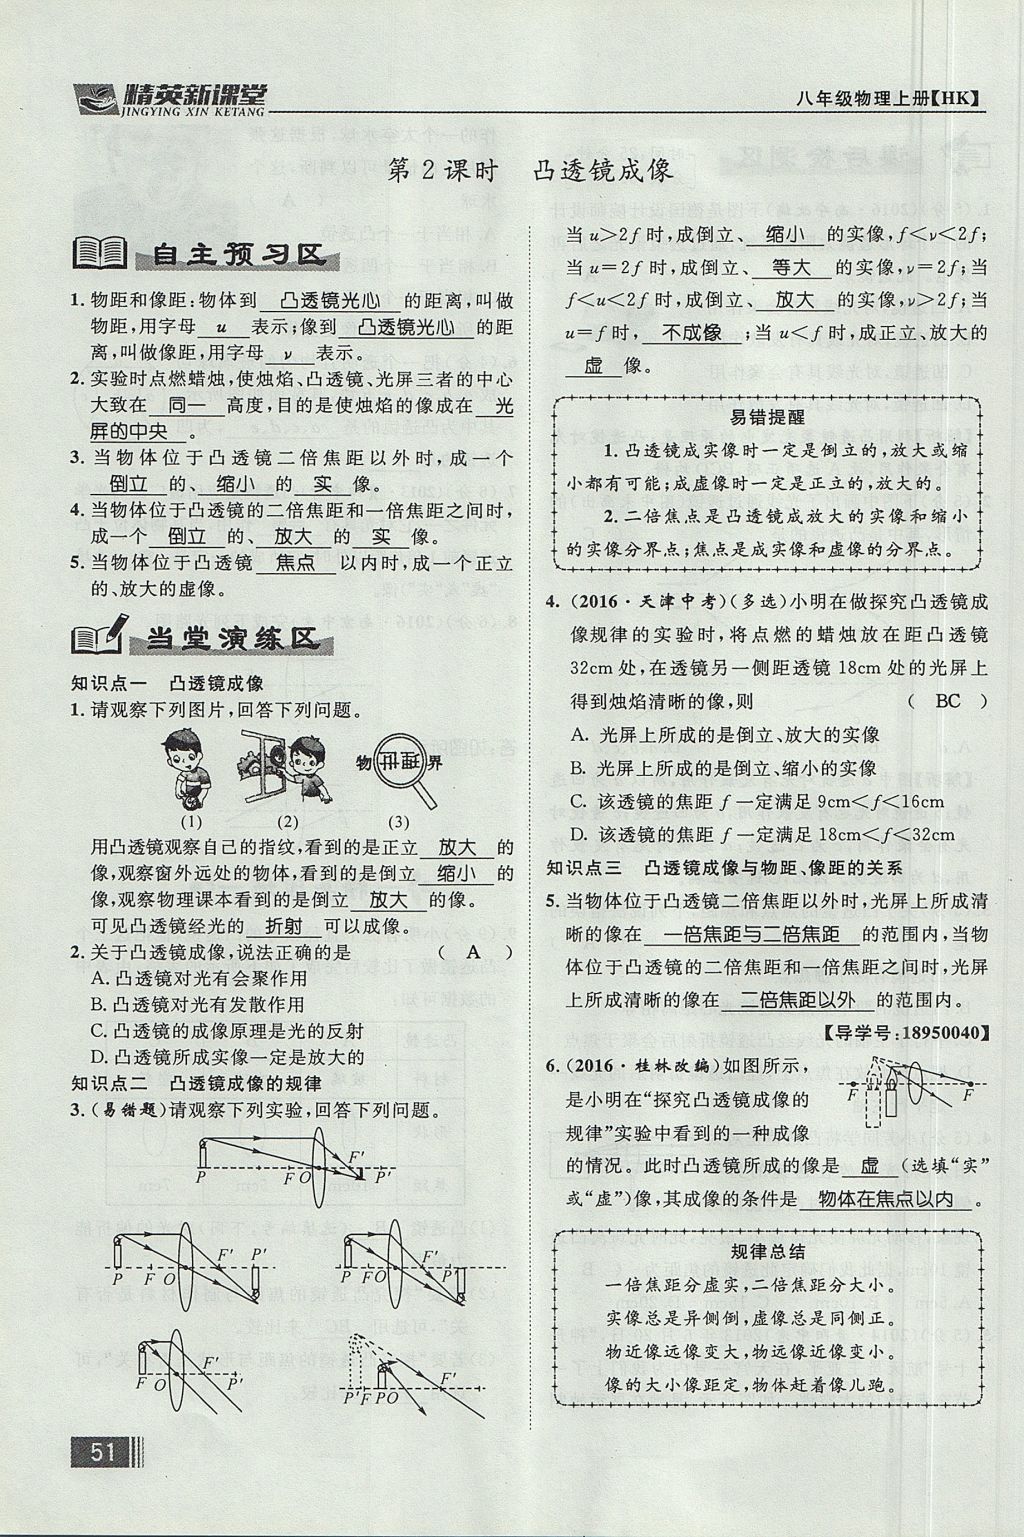 精英新课堂
JINGYING XIN KETANG
八年级物理上册【HK】
第2课时 凸透镜成像
自主预习区
1. 物距和像距:物体到 凸透镜光心 的距离,叫做
物距,用字母 u 表示;像到 凸透镜光心 的距
离,叫做像距,用字母 ν 表示。
2. 实验时点燃蜡烛,使烛焰、凸透镜、光屏三者的中心
大致在 同一 高度,目的是使烛焰的像成在 光
屏的中央 。
3. 当物体位于凸透镜二倍焦距以外时,成一个
倒立 的、 缩小 的 实 像。
4. 当物体位于凸透镜的二倍焦距和一倍焦距之间时,
成一个 倒立 的、 放大 的 实 像。
5. 当物体位于凸透镜 焦点 以内时,成一个正立
的、放大的虚像。
当堂演练区
知识点一 凸透镜成像
1. 请观察下列图片,回答下列问题。
物理世界
(1) (2) (3)
用凸透镜观察自己的指纹,看到的是正立 放大 的
像,观察窗外远处的物体,看到的是倒立 缩小 的
像,观察物理课本看到的是倒立 放大 的像。
可见凸透镜经光的 折射 可以成像。
2. 关于凸透镜成像,说法正确的是 ( A )
A. 凸透镜对光有会聚作用
B. 凸透镜对光有发散作用
C. 凸透镜的成像原理是光的反射
D. 凸透镜所成实像一定是放大的
知识点二 凸透镜成像的规律
3. (易错题)请观察下列实验,回答下列问题。
P F O F′ P′
P F O F′ P′
P F O F′ P′
F O P′
P′ F P O
当u>2f时,成倒立、 缩小 的实像,f<ν<2f;
当u=2f时,成倒立、 等大 的实像,ν=2f;当
f<u<2f时,成倒立、 放大 的实像,ν>2f;当
u=f时, 不成像 ;当u<f时,成正立、放大的
虚 像。
易错提醒
1. 凸透镜成实像时一定是倒立的,放大或缩
小都有可能;成虚像时一定是正立的,放大的。
2. 二倍焦点是凸透镜成放大的实像和缩小
的实像分界点;焦点是成实像和虚像的分界点。
4. (2016·天津中考)(多选)小明在做探究凸透镜成
像规律的实验时,将点燃的蜡烛放在距凸透镜
32cm处,在透镜另一侧距透镜18cm处的光屏上
得到烛焰清晰的像,则 ( BC )
A. 光屏上所成的是倒立、放大的实像
B. 光屏上所成的是倒立、缩小的实像
C. 该透镜的焦距f一定满足9cm<f<16cm
D. 该透镜的焦距f一定满足18cm<f<32cm
知识点三 凸透镜成像与物距、像距的关系
5. 当物体位于凸透镜二倍焦距以外时,光屏上所成清
晰的像在 一倍焦距与二倍焦距 的范围内,当物
体位于凸透镜的二倍焦距和一倍焦距之间时,光屏
上所成清晰的像在 二倍焦距以外 的范围内。
【导学号:18950040】
6. (2016·桂林改编)如图所示,
是小明在“探究凸透镜成像的
规律”实验中看到的一种成像
F F
的情况。此时凸透镜所成的像是 虚 (选填“实”
或“虚”)像,其成像的条件是 物体在焦点以内 。
规律总结
一倍焦距分虚实,二倍焦距分大小。
实像总是异侧倒,虚像总是同侧正。
物近像远像变大,物远像近像变小。
像的大小像距定,物体赶着像儿跑。
51